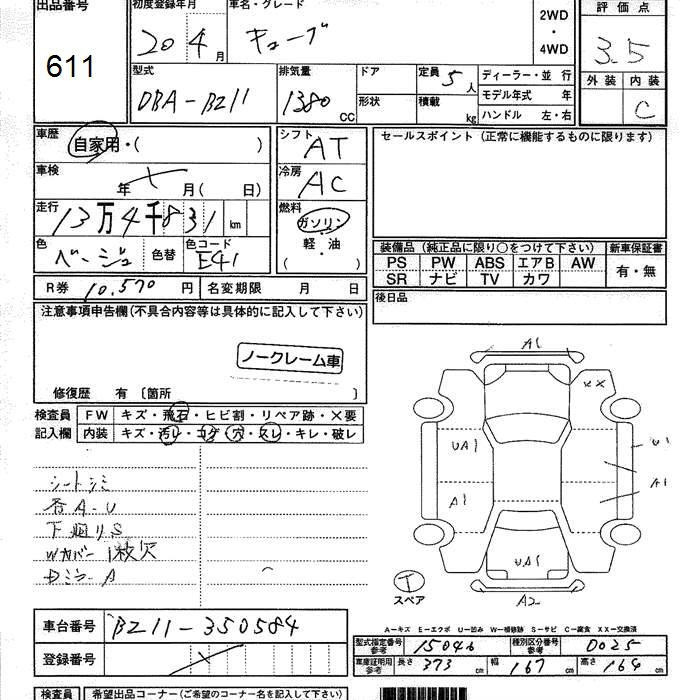 出品番号 初度登録年月 車名・グレード 2WD・4WD 評価点
611 20 4月 キューブ 3.5
型式 排気量 ドア 定員 5人 ディーラー・並行 外装 内装
DBA-BZ11 1380CC 形状 積載 kg モデル年式 年 C
ハンドル 左・右
車歴 自家用・( ) シフト AT セールスポイント(正常に機能するものに限ります)
車検 年 月( 日) 冷房 AC
走行 13万4千831km 燃料 ガソリン
軽・油
( )
色 ベージュ 色替 色コード E41
装備品(純正品に限り○をつけて下さい) 新車保証書
PS PW ABS エアB AW 有・無
SR ナビ TV カワ
R券 10,570円 名変期限 月 日 後日品
注意事項申告欄(不具合内容等は具体的に記入して下さい)
ノークレーム車
修復歴 有 〔箇所 〕
検査員 FW キズ・飛石・ヒビ割・リペア跡・×要
記入欄 内装 キズ・汚レ・コゲ・穴・スレ・キレ・破レ
シートシミ
各A-U
下廻りS
Wカバー1枚欠
DミラーA
A1
XX
UA1 U1
A1 A1
UA1
スペア
A2
車台番号 BZ11-350584
登録番号
A-キズ E-エクボ U-凹み W-補修跡 S-サビ C-腐食 XX-交換済
型式指定番号 参考 15046 種別区分番号 参考 0025
車庫証明用 参考 長さ 373cm 幅 167cm 高さ 164cm
検査員 希望出品コーナー(ご希望のコーナー名を記入して下さい)